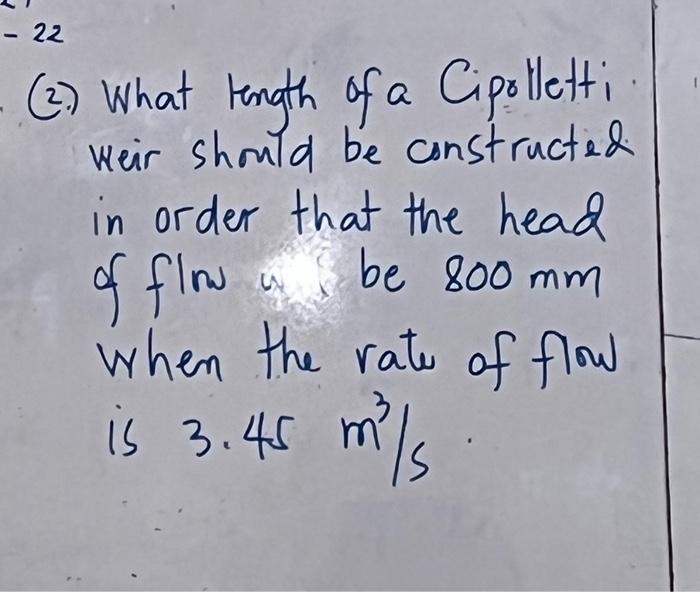 - 22
(2.) What length of a Cipolletti
weir should be constructed
in order that the head
of flow be 800 mm
when the rate of flow
is 3.45 m³/s.